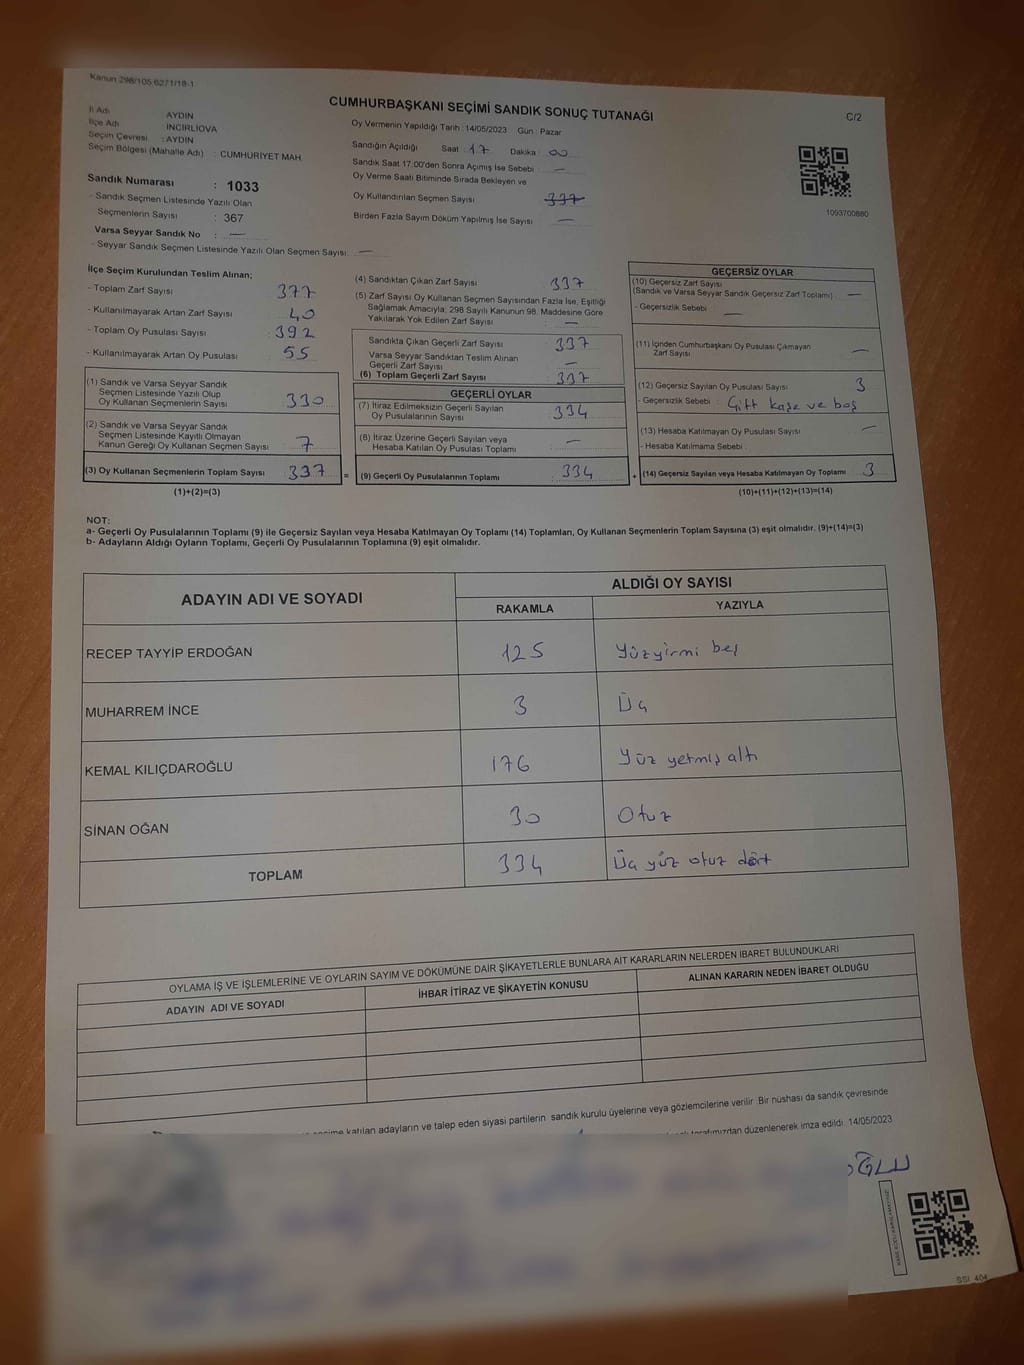 Kanun 298/105 6271/18-1
CUMHURBAŞKANI SEÇİMİ SANDIK SONUÇ TUTANAĞI
C/2
İl Adı AYDIN
İlçe Adı İNCİRLİOVA
Seçim Çevresi : AYDIN
Seçim Bölgesi (Mahalle Adı) : CUMHURİYET MAH.
Oy Vermenin Yapıldığı Tarih : 14/05/2023 Gün : Pazar
Sandığın Açıldığı Saat : 17 Dakika : 00
Sandık Saat 17.00'den Sonra Açımış İse Sebebi : —
Oy Verme Saati Bitiminde Sırada Bekleyen ve
Oy Kullandırılan Seçmen Sayısı 337
Birden Fazla Sayım Döküm Yapılmış İse Sayısı —
1093700880
Sandık Numarası : 1033
- Sandık Seçmen Listesinde Yazılı Olan
Seçmenlerin Sayısı : 367
Varsa Seyyar Sandık No : —
- Seyyar Sandık Seçmen Listesinde Yazılı Olan Seçmen Sayısı: —
İlçe Seçim Kurulundan Teslim Alınan;
- Toplam Zarf Sayısı 377
- Kullanılmayarak Artan Zarf Sayısı 40
- Toplam Oy Pusulası Sayısı 392
- Kullanılmayarak Artan Oy Pusulası 55
(1) Sandık ve Varsa Seyyar Sandık
Seçmen Listesinde Yazılı Olup
Oy Kullanan Seçmenlerin Sayısı 330
(2) Sandık ve Varsa Seyyar Sandık
Seçmen Listesinde Kayıtlı Olmayan
Kanun Gereği Oy Kullanan Seçmen Sayısı 7
(3) Oy Kullanan Seçmenlerin Toplam Sayısı 337 =
(1)+(2)=(3)
(4) Sandıktan Çıkan Zarf Sayısı 337
(5) Zarf Sayısı Oy Kullanan Seçmen Sayısından Fazla İse, Eşitliği
Sağlamak Amacıyla; 298 Sayılı Kanunun 98. Maddesine Göre
Yakılarak Yok Edilen Zarf Sayısı —
Sandıkta Çıkan Geçerli Zarf Sayısı 337
Varsa Seyyar Sandıktan Teslim Alınan
Geçerli Zarf Sayısı —
(6) Toplam Geçerli Zarf Sayısı 337
GEÇERLİ OYLAR
(7) İtiraz Edilmeksizin Geçerli Sayılan
Oy Pusulalarının Sayısı 334
(8) İtiraz Üzerine Geçerli Sayılan veya
Hesaba Katılan Oy Pusulası Toplamı —
(9) Geçerli Oy Pusulalarının Toplamı 334 +
GEÇERSİZ OYLAR
(10) Geçersiz Zarf Sayısı
(Sandık ve Varsa Seyyar Sandık Geçersiz Zarf Toplamı) —
- Geçersizlik Sebebi : —
(11) İçinden Cumhurbaşkanı Oy Pusulası Çıkmayan
Zarf Sayısı —
(12) Geçersiz Sayılan Oy Pusulası Sayısı 3
- Geçersizlik Sebebi : Çift kaşe ve boş
(13) Hesaba Katılmayan Oy Pusulası Sayısı —
- Hesaba Katılmama Sebebi :
(14) Geçersiz Sayılan veya Hesaba Katılmayan Oy Toplamı 3
(10)+(11)+(12)+(13)=(14)
NOT:
a- Geçerli Oy Pusulalarının Toplamı (9) ile Geçersiz Sayılan veya Hesaba Katılmayan Oy Toplamı (14) Toplamları, Oy Kullanan Seçmenlerin Toplam Sayısına (3) eşit olmalıdır. (9)+(14)=(3)
b- Adayların Aldığı Oyların Toplamı, Geçerli Oy Pusulalarının Toplamına (9) eşit olmalıdır.
ADAYIN ADI VE SOYADI ALDIĞI OY SAYISI
RAKAMLA YAZIYLA
RECEP TAYYİP ERDOĞAN 125 Yüzyirmi beş
MUHARREM İNCE 3 Üç
KEMAL KILIÇDAROĞLU 176 Yüz yetmiş altı
SİNAN OĞAN 30 Otuz
TOPLAM 334 Üç yüz otuz dört
OYLAMA İŞ VE İŞLEMLERİNE VE OYLARIN SAYIM VE DÖKÜMÜNE DAİR ŞİKAYETLERLE BUNLARA AİT KARARLARIN NELERDEN İBARET BULUNDUKLARI
ADAYIN ADI VE SOYADI İHBAR İTİRAZ VE ŞİKAYETİN KONUSU ALINAN KARARIN NEDEN İBARET OLDUĞU
katılan adayların ve talep eden siyasi partilerin sandık kurulu üyelerine veya gözlemcilerine verilir. Bir nüshası da sandık çevresinde
tarafımızdan düzenlenerek imza edildi. 14/05/2023
OĞLU
SSİ 404